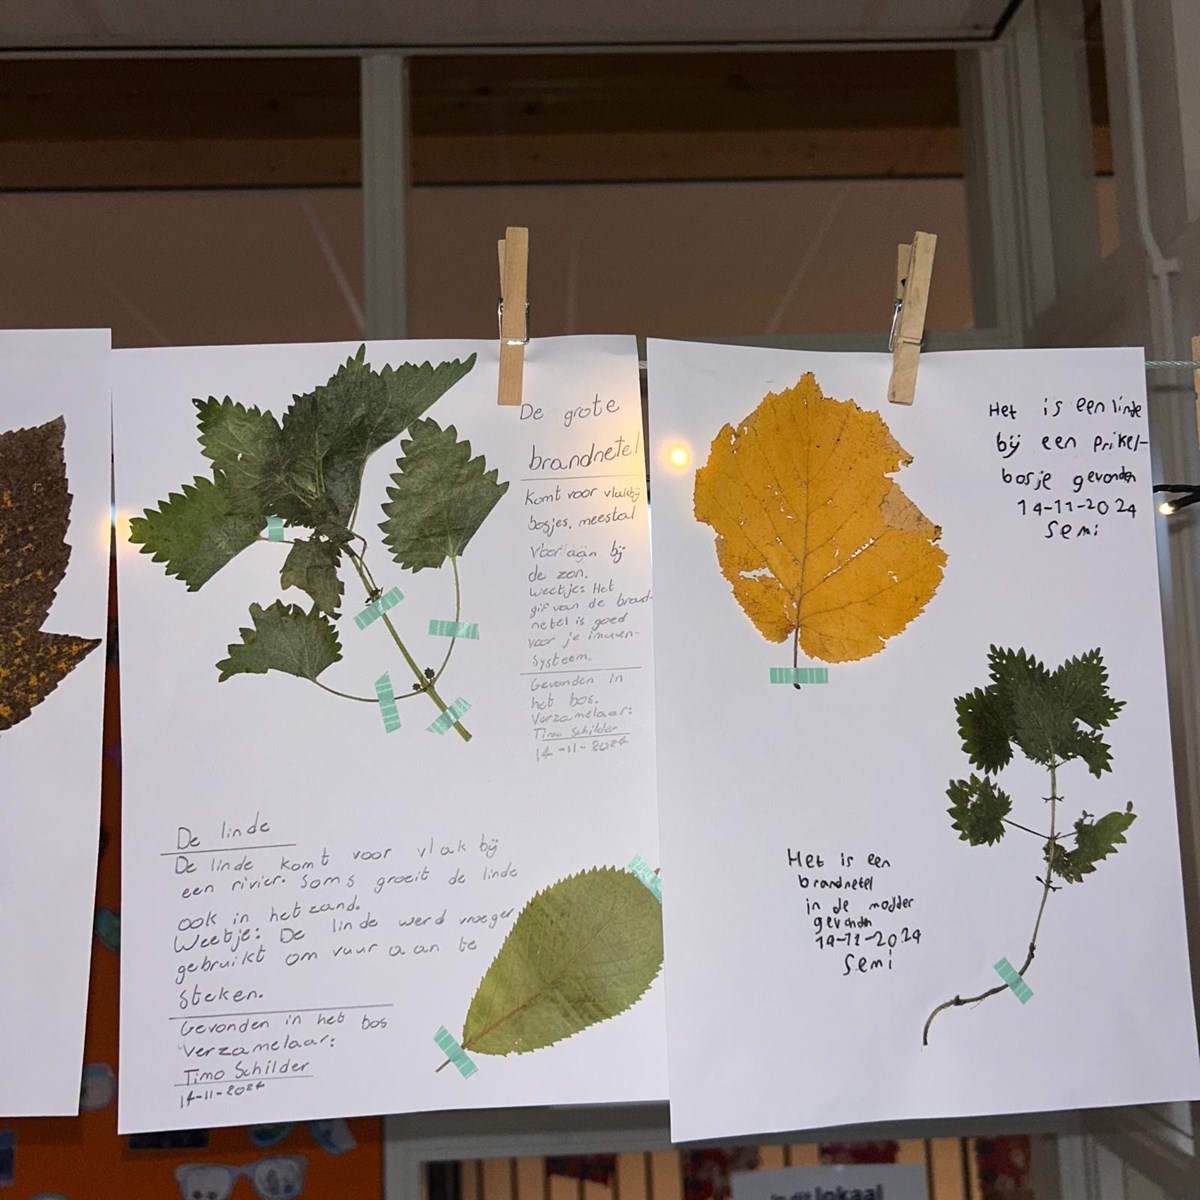 De grote
brandnetel
Komt voor vlakbij
bosjes, meestal
vooraan bij
de zon.
weetje: Het
gif van de brand-
netel is goed
voor je immuun-
systeem.
Gevonden in
het bos.
Verzamelaar:
Timo Schilder
14-11-2024
De linde
De linde komt voor vlak bij
een rivier. Soms groeit de linde
ook in het zand.
Weetje: De linde werd vroeger
gebruikt om vuur aan te
steken.
Gevonden in het bos
Verzamelaar:
Timo Schilder
14-11-2024
Het is een linde
bij een prikel-
bosje gevonden
14-11-2024
Semi
Het is een
brandnetel
in de modder
gevonden
14-11-2024
Semi
lokaal